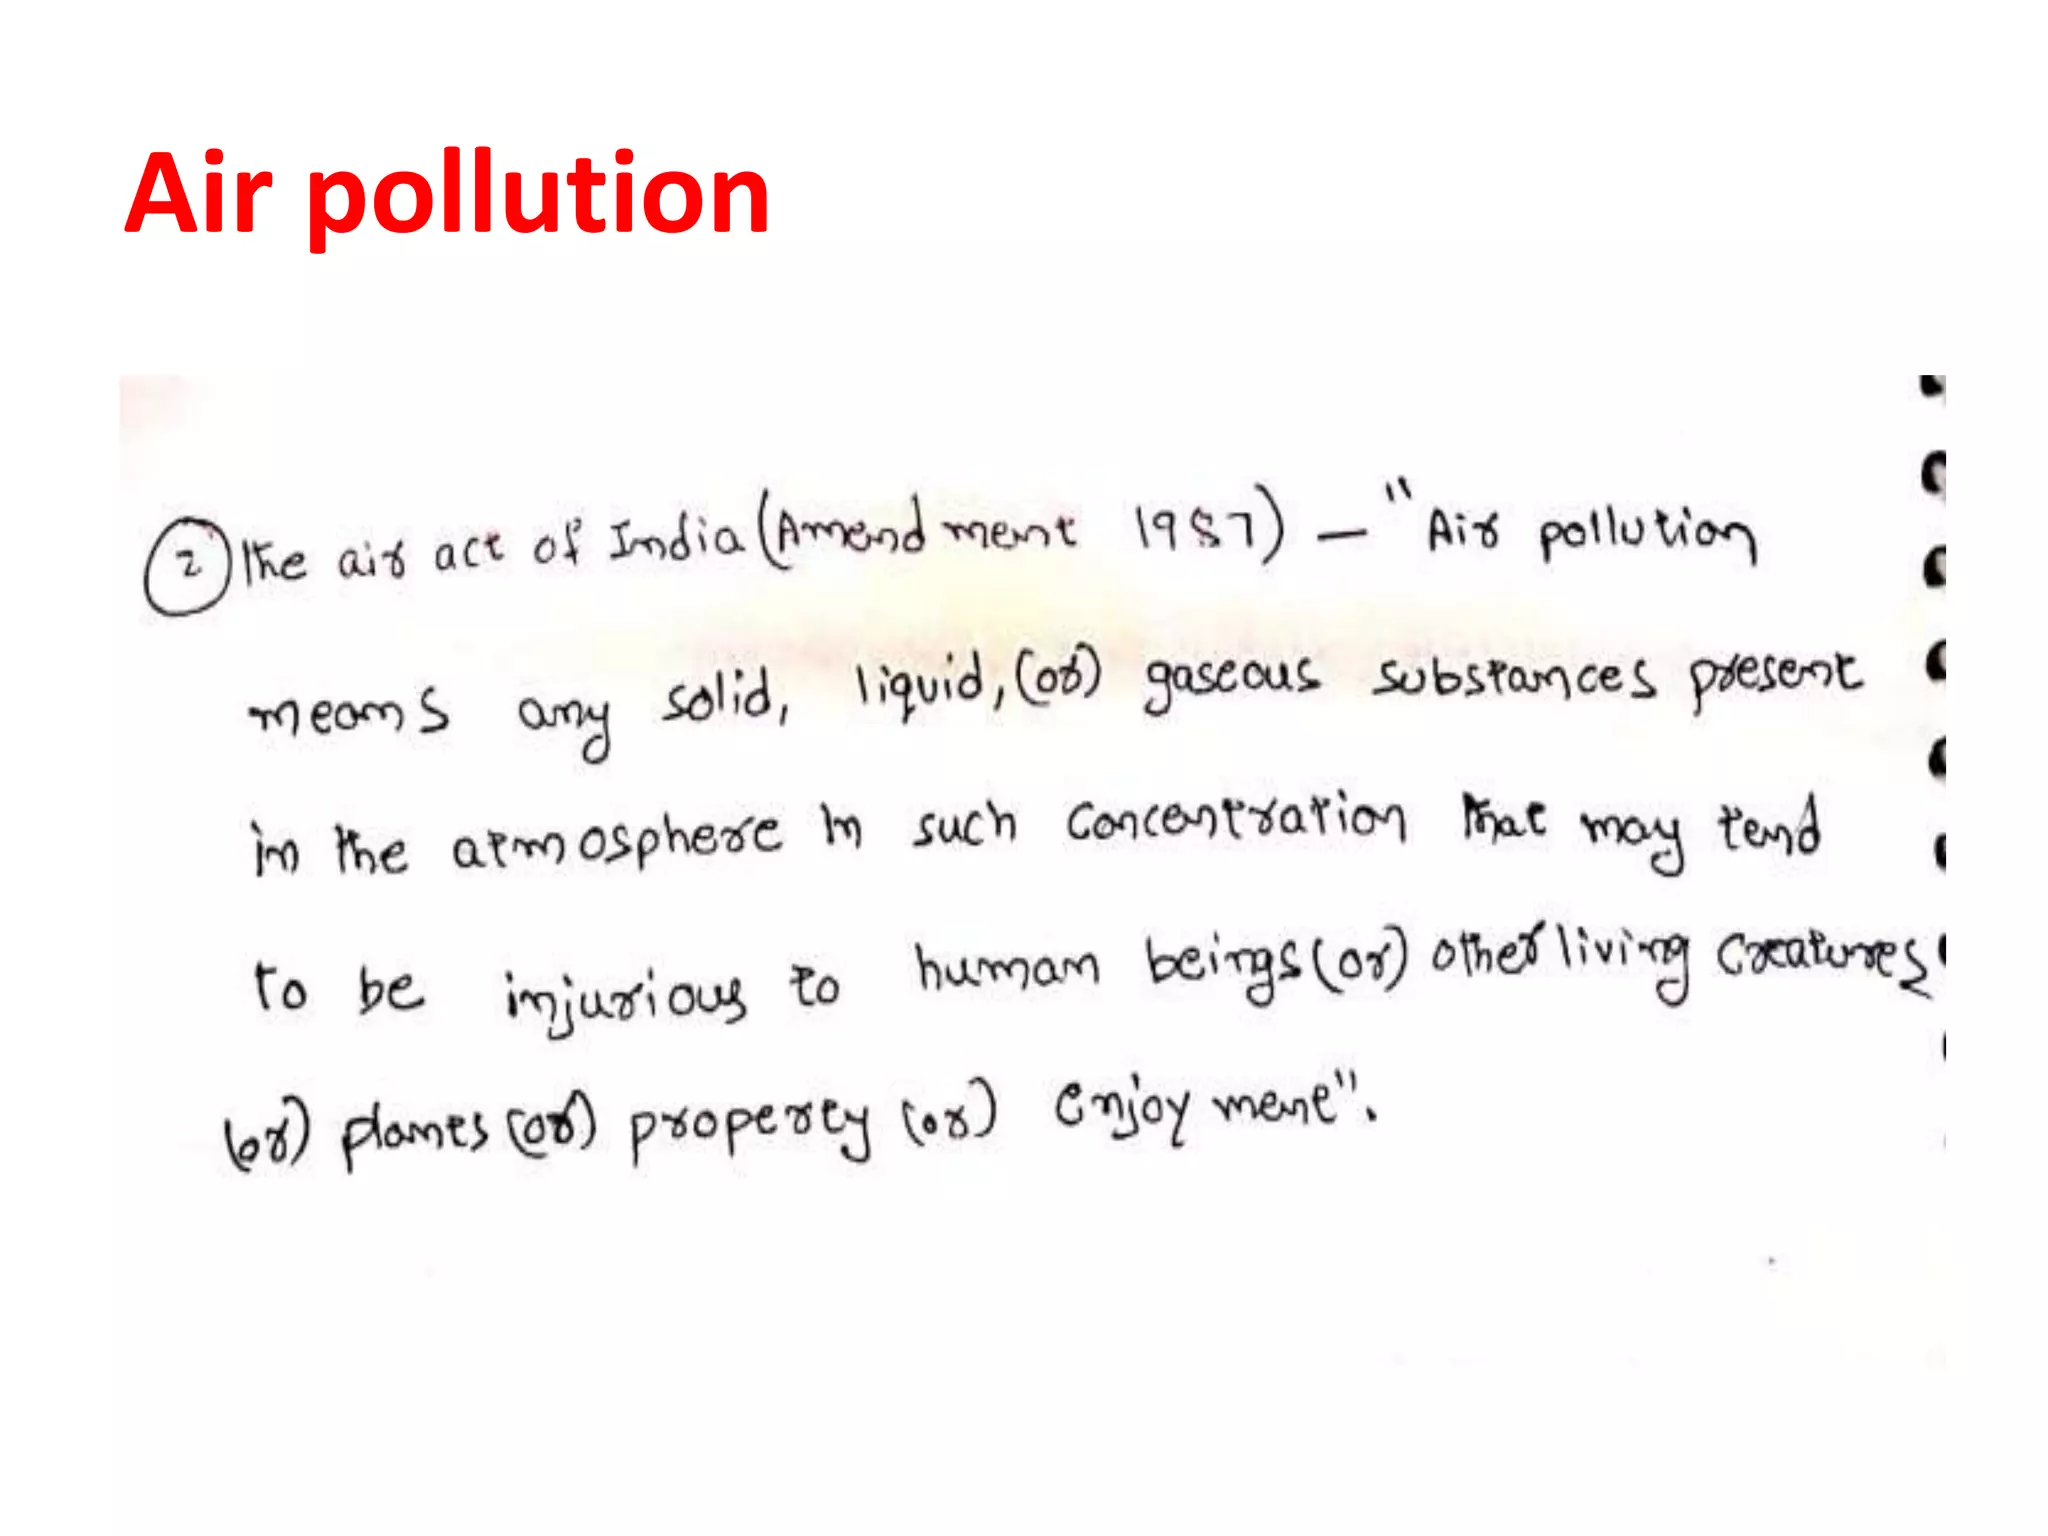 Air pollution
2 The air act of India (Amendment 1987) – "Air pollution
means any solid, liquid, (or) gaseous substances present
in the atmosphere in such concentration that may tend
to be injurious to human beings (or) other living creatures
(or) plants (or) property (or) enjoyment".